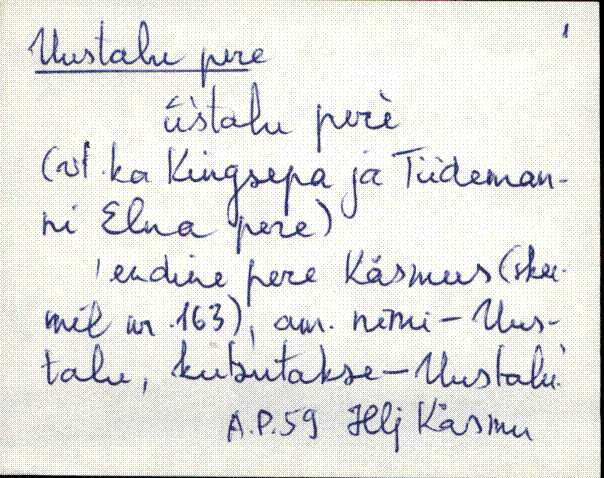 1
Uustalu pere
ùstalu perè
(vt. ka Kingsepa ja Tiideman-
ni Elna pere)
'endine pere Käsmus (skee-
mil nr. 163), am. nimi - Uus-
talu, kutsutakse - Uustalu.'
A.P. 59 Hlj Käsmu